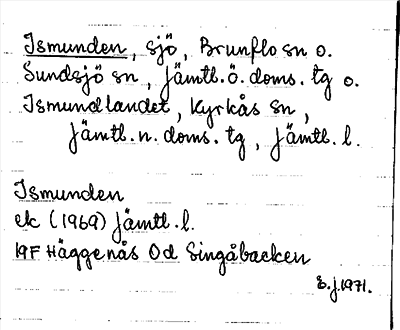 Ismunden, sjö, Brunflo sn o.
Sundsjö sn, Jämtl. ö. doms. tg o.
Ismundlandet, Kyrkås sn,
Jämtl. n. doms. tg, Jämtl. l.
Ismunden
ek (1969) Jämtl. l.
19F Häggenås 0d Singåbacken
S.J. 1971.